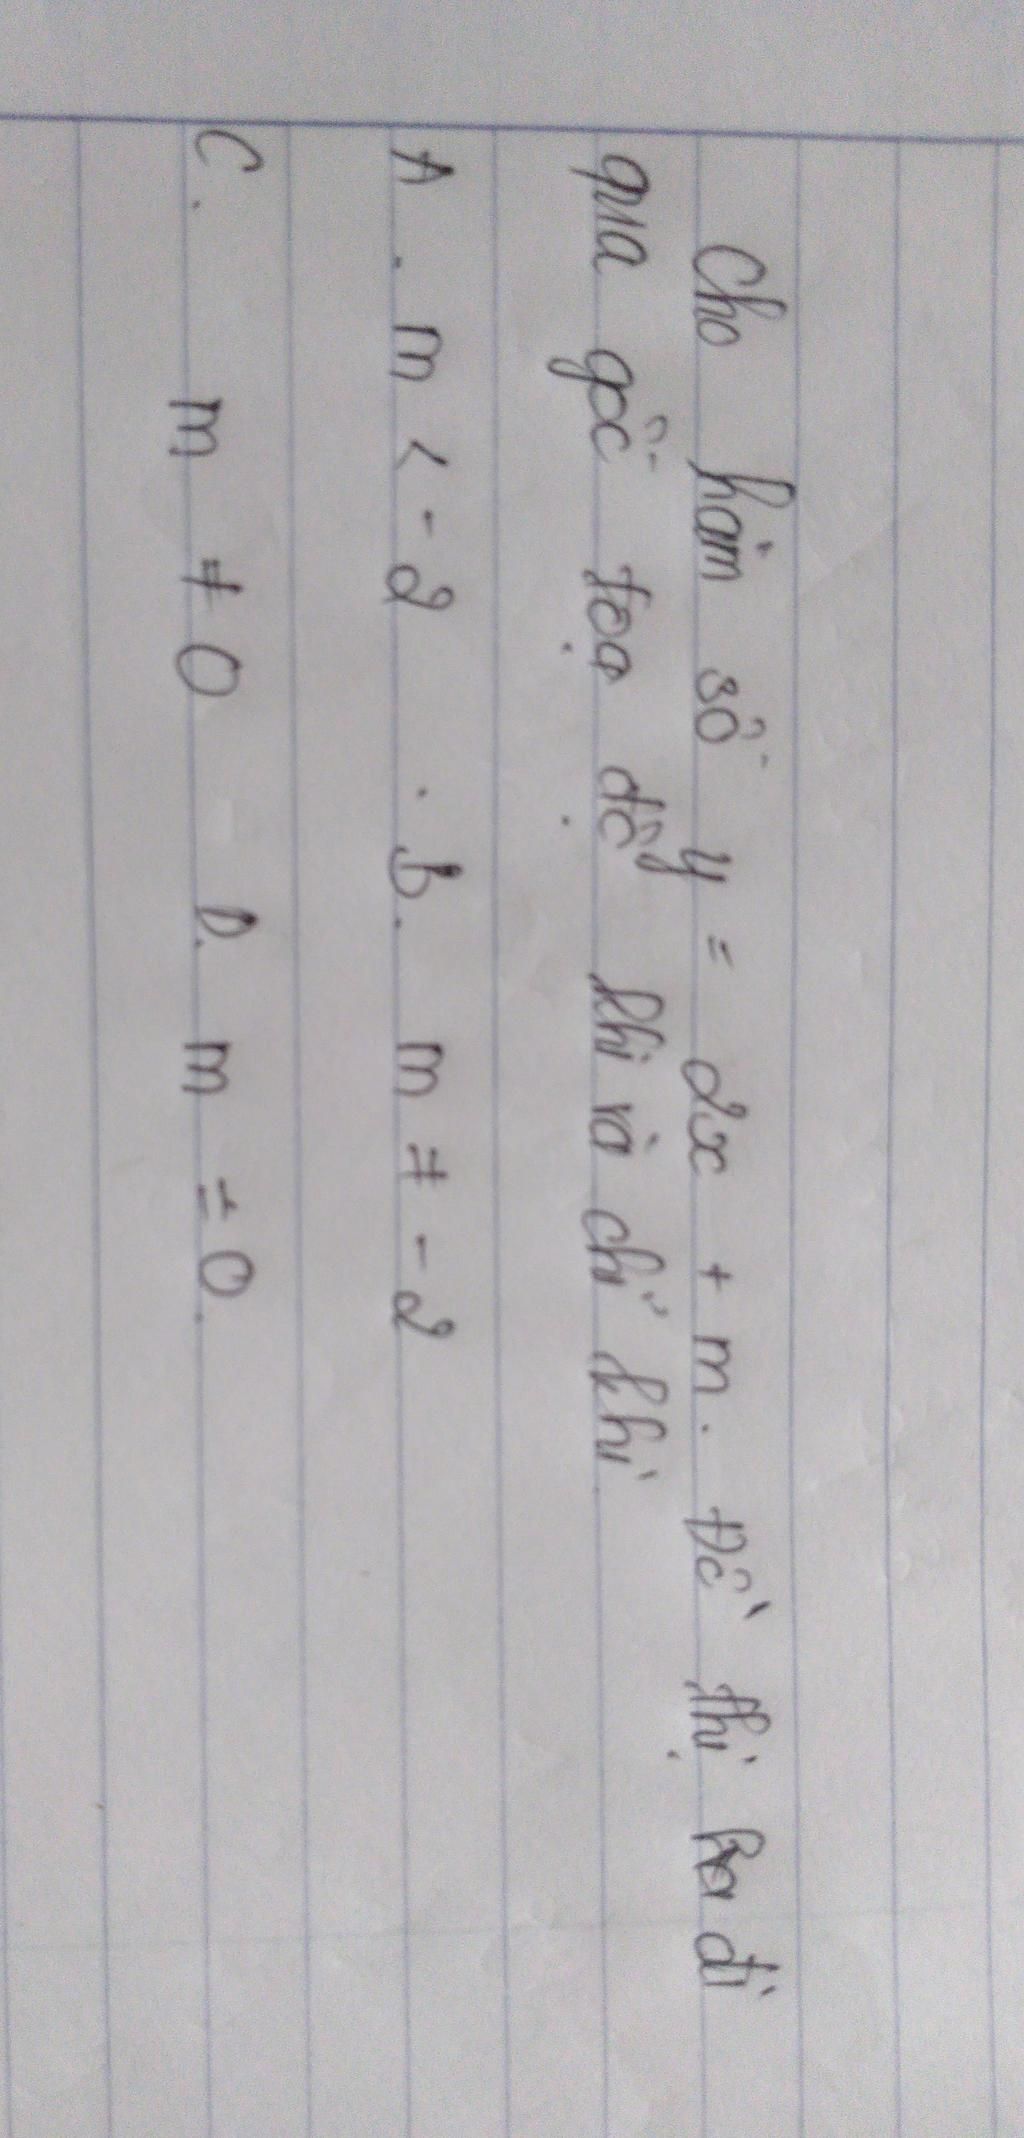 Cho hàm số y = 2x + m. Đồ thị đi
qua gốc tọa độ khi và chỉ khi
A. m < -2 . b. m ≠ -2
C. m ≠ 0 D. m = 0.